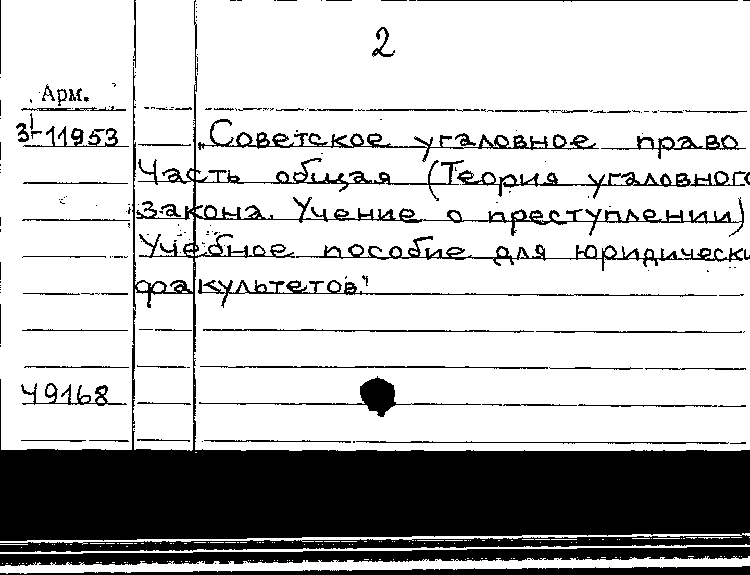 2
Арм.
З1-11953 „Советское уголовное право
Часть общая (Теория уголовного
закона. Учение о преступлении)
Учебное пособие для юридически
факультетов."
49168